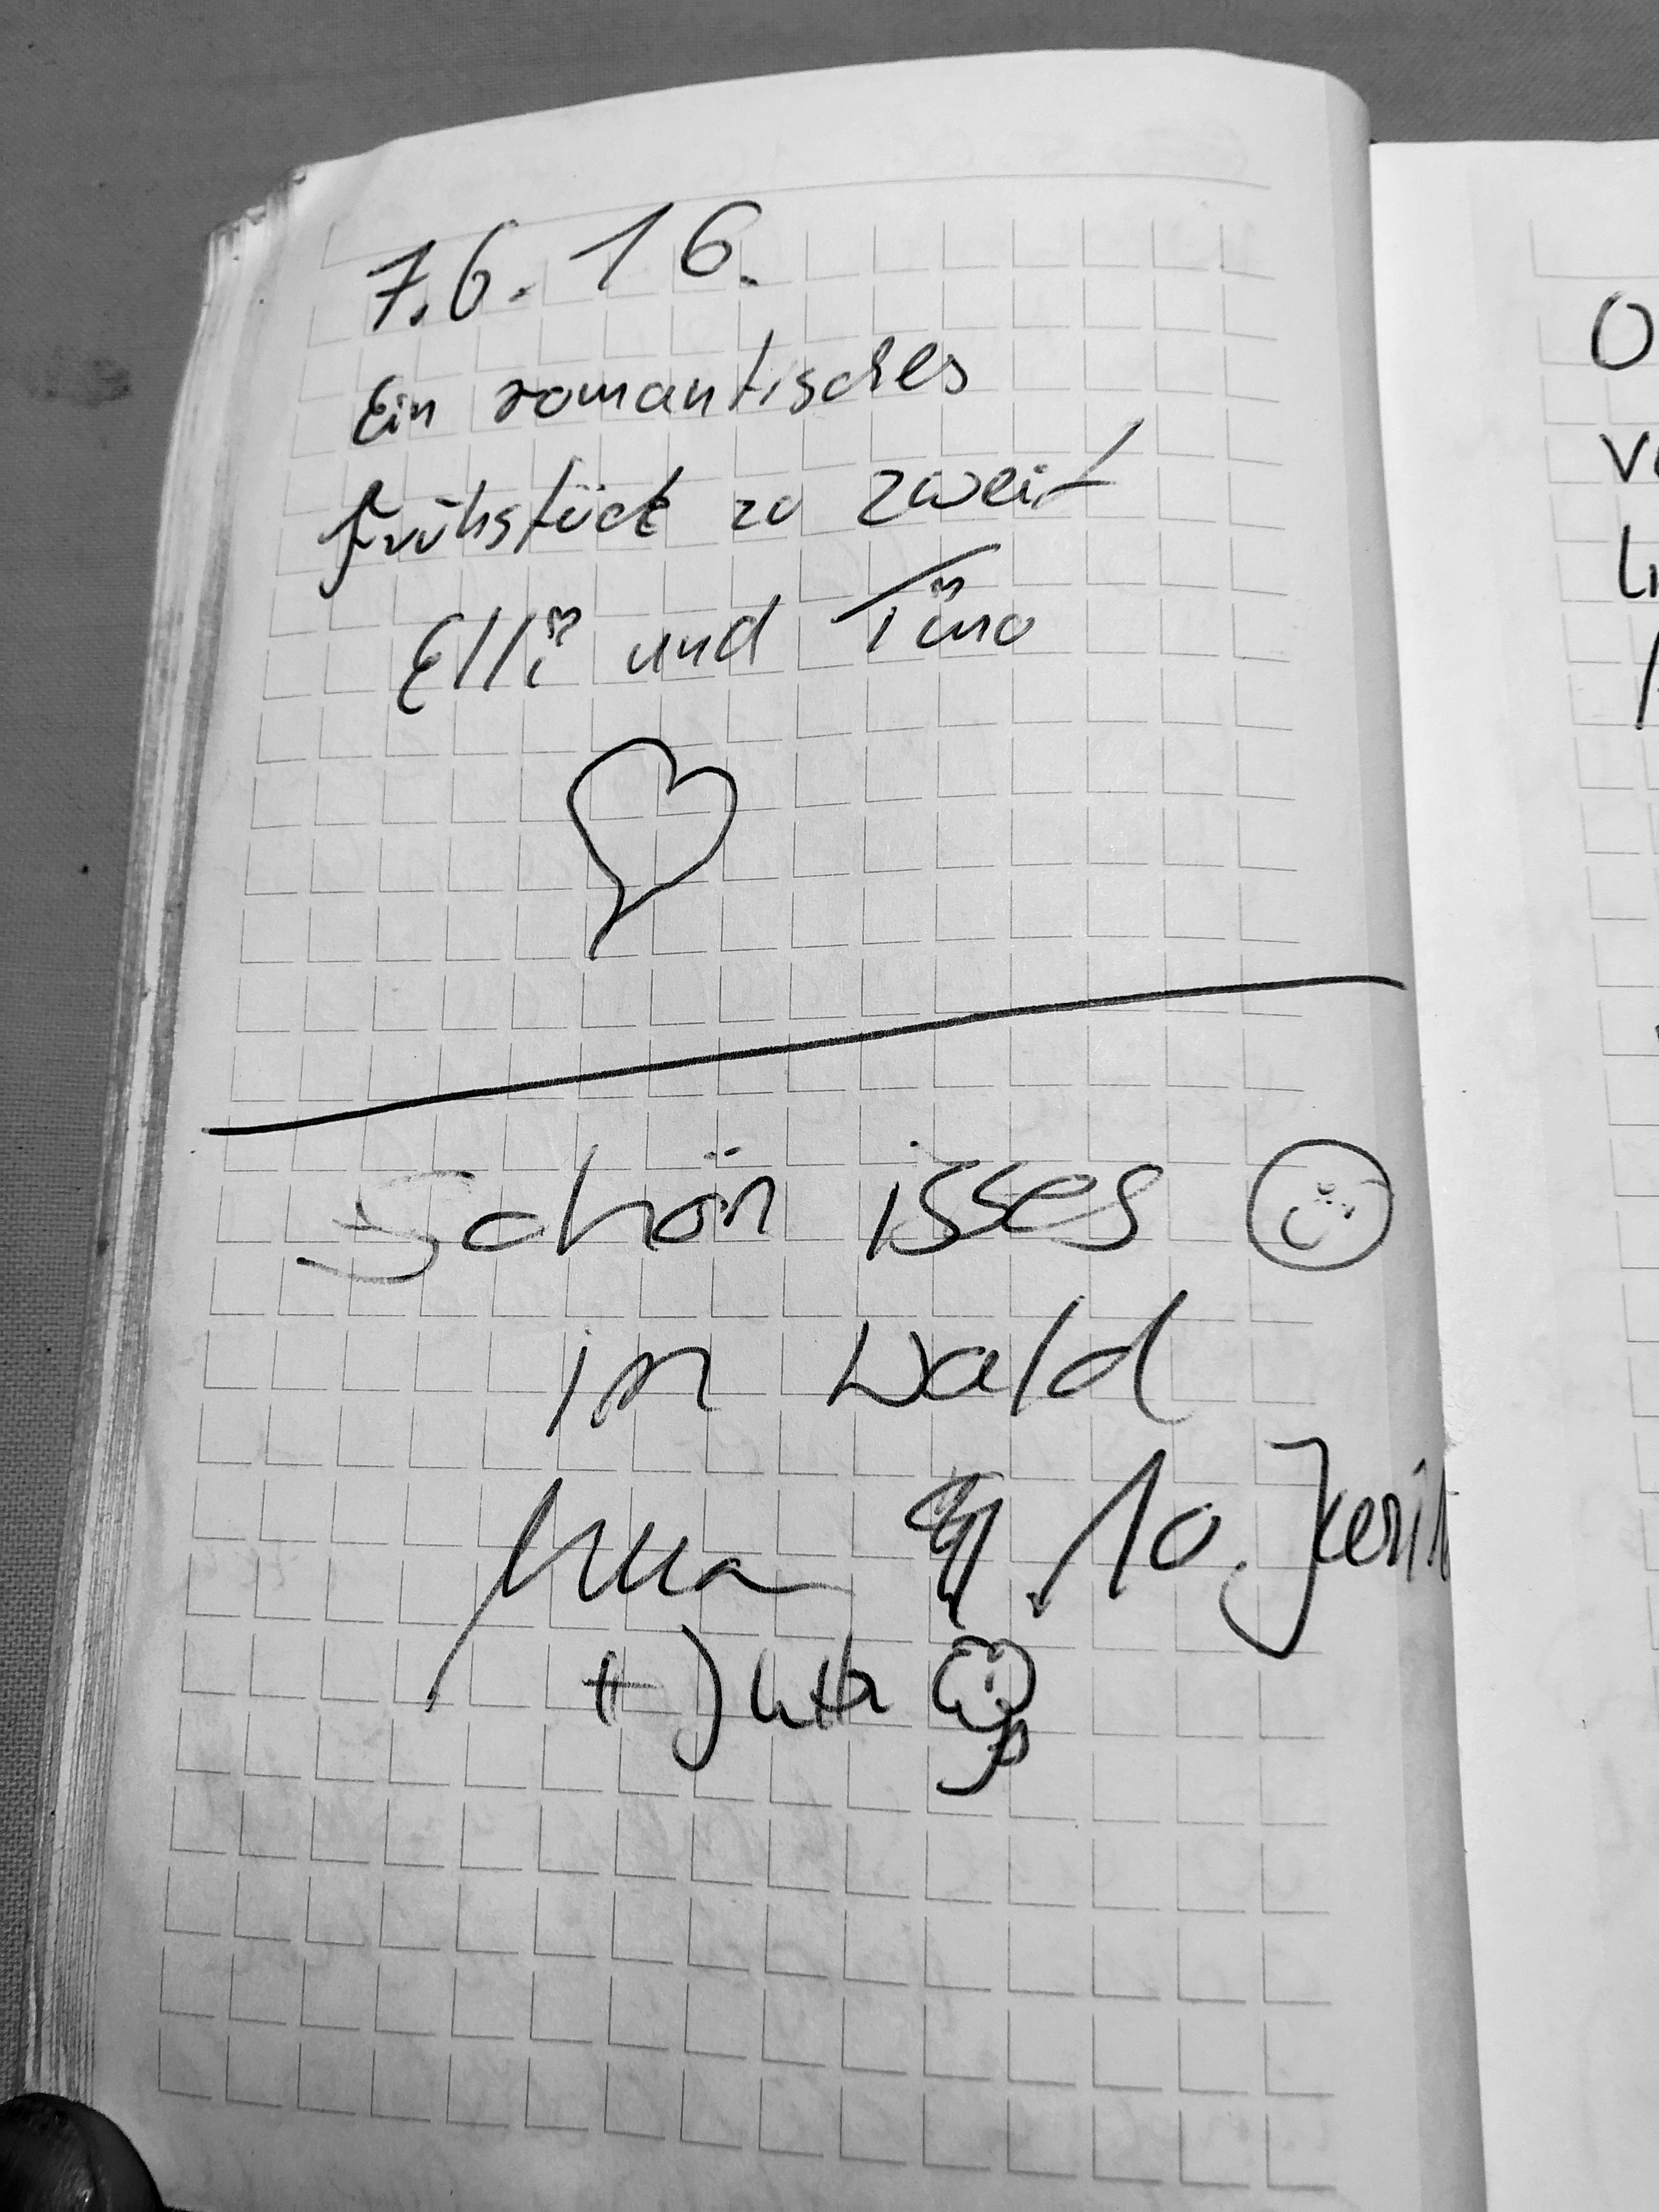 7.6.16.
Ein romantisches
Frühstück zu zweit
Elli und Tino
Schön isses
im Wald
10.
+ Jutta